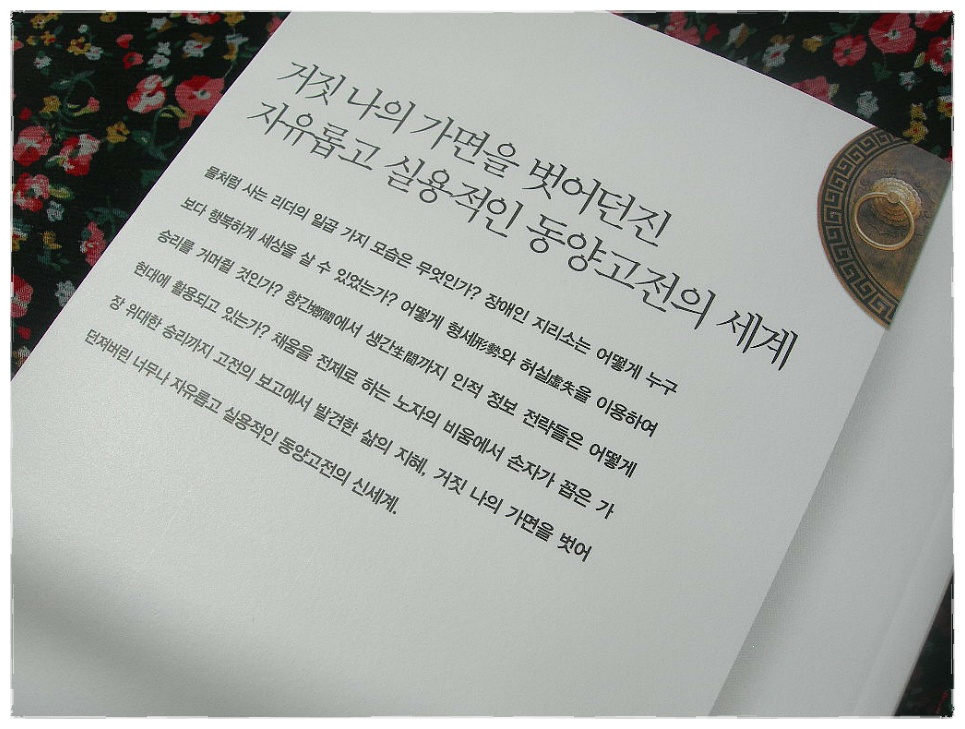 거짓 나의 가면을 벗어던진
자유롭고 실용적인 동양고전의 세계
물처럼 사는 리더의 일곱 가지 모습은 무엇인가? 장애인 지리소는 어떻게 누구
보다 행복하게 세상을 살 수 있었는가? 어떻게 형세形勢와 허실虛失을 이용하여
승리를 거머쥘 것인가? 향간鄕間에서 생간生間까지 인적 정보 전략들은 어떻게
현대에 활용되고 있는가? 채움을 전제로 하는 노자의 비움에서 손자가 꼽은 가
장 위대한 승리까지 고전의 보고에서 발견한 삶의 지혜, 거짓 나의 가면을 벗어
던져버린 너무나 자유롭고 실용적인 동양고전의 신세계.